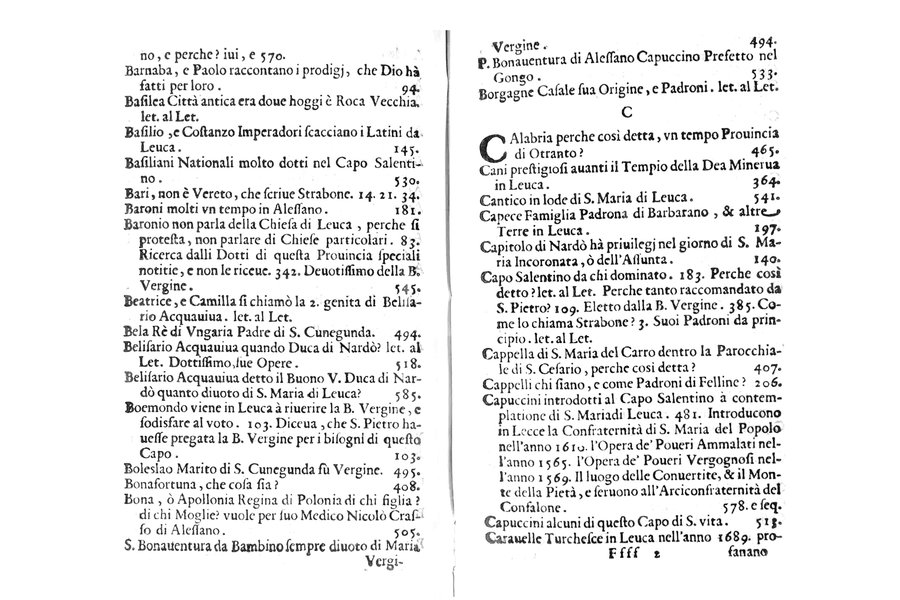 no, e perche? iui, e 570.
Barnaba, e Paolo raccontano i prodigj, che Dio hà
fatti per loro. 94.
Baſilea Città antica era doue hoggi è Roca Vecchia.
let. al Let.
Baſilio, e Coſtanzo Imperadori ſcacciano i Latini da
Leuca. 145.
Baſiliani Nationali molto dotti nel Capo Salenti-
no. 530.
Bari, non è Vereto, che ſcriue Strabone. 14. 21. 34.
Baroni molti vn tempo in Aleſſano. 181.
Baronio non parla della Chieſa di Leuca, perche ſi
proteſta, non parlare di Chieſe particolari. 83.
Ricerca dalli Dotti di queſta Prouincia ſpeciali
notitie, e non le riceue. 342. Deuotiſſimo della B.
Vergine. 545.
Beatrice, e Camilla ſi chiamò la 2. genita di Beliſa-
rio Acquauiua. let. al Let.
Bela Rè di Vngaria Padre di S. Cunegunda. 494.
Beliſario Acquauiua quando Duca di Nardò? let. al
Let. Dottiſſimo, ſue Opere. 518.
Beliſario Acquauiua detto il Buono V. Duca di Nar-
dò quanto diuoto di S. Maria di Leuca? 585.
Boemondo viene in Leuca à riuerire la B. Vergine, e
ſodisfare al voto. 103. Diceua, che S. Pietro ha-
ueſſe pregata la B. Vergine per i biſogni di queſto
Capo. 103.
Boleslao Marito di S. Cunegunda fù Vergine. 495.
Bonafortuna, che coſa ſia? 408.
Bona, ò Apollonia Regina di Polonia di chi figlia?
di chi Moglie? vuole per ſuo Medico Nicolò Craſ-
ſo di Aleſſano. 505.
S. Bonauentura da Bambino ſempre diuoto di Maria
Vergi-
Vergine. 494.
P. Bonauentura di Aleſſano Capuccino Prefetto nel
Gongo. 533.
Borgagne Caſale ſua Origine, e Padroni. let. al Let.
C
CAlabria perche così detta, vn tempo Prouincia
di Otranto? 465.
Cani preſtigioſi auanti il Tempio della Dea Minerua
in Leuca. 364.
Cantico in lode di S. Maria di Leuca. 541.
Capece Famiglia Padrona di Barbarano, & altre
Terre in Leuca. 197.
Capitolo di Nardò hà priuilegj nel giorno di S. Ma-
ria Incoronata, ò dell'Aſſunta. 140.
Capo Salentino da chi dominato. 183. Perche così
detto? let. al Let. Perche tanto raccomandato da
S. Pietro? 109. Eletto dalla B. Vergine. 385. Co-
me lo chiama Strabone? 3. Suoi Padroni da prin-
cipio. let. al Let.
Cappella di S. Maria del Carro dentro la Parocchia-
le di S. Ceſario, perche così detta? 407.
Cappelli chi ſiano, e come Padroni di Felline? 206.
Capuccini introdotti al Capo Salentino à contem-
platione di S. Maria di Leuca. 481. Introducono
in Lecce la Confraternità di S. Maria del Popolo
nell'anno 1610. l'Opera de' Poueri Ammalati nel-
l'anno 1565. l'Opera de' Poueri Vergognoſi nel-
l'anno 1569. Il luogo delle Conuertite, & il Mon-
te della Pietà, e ſeruono all'Arciconfraternità del
Confalone. 578. e ſeq.
Capuccini alcuni di queſto Capo di S. vita. 513.
Carauelle Turcheſce in Leuca nell'anno 1689. pro-
Ffff 2 fanano